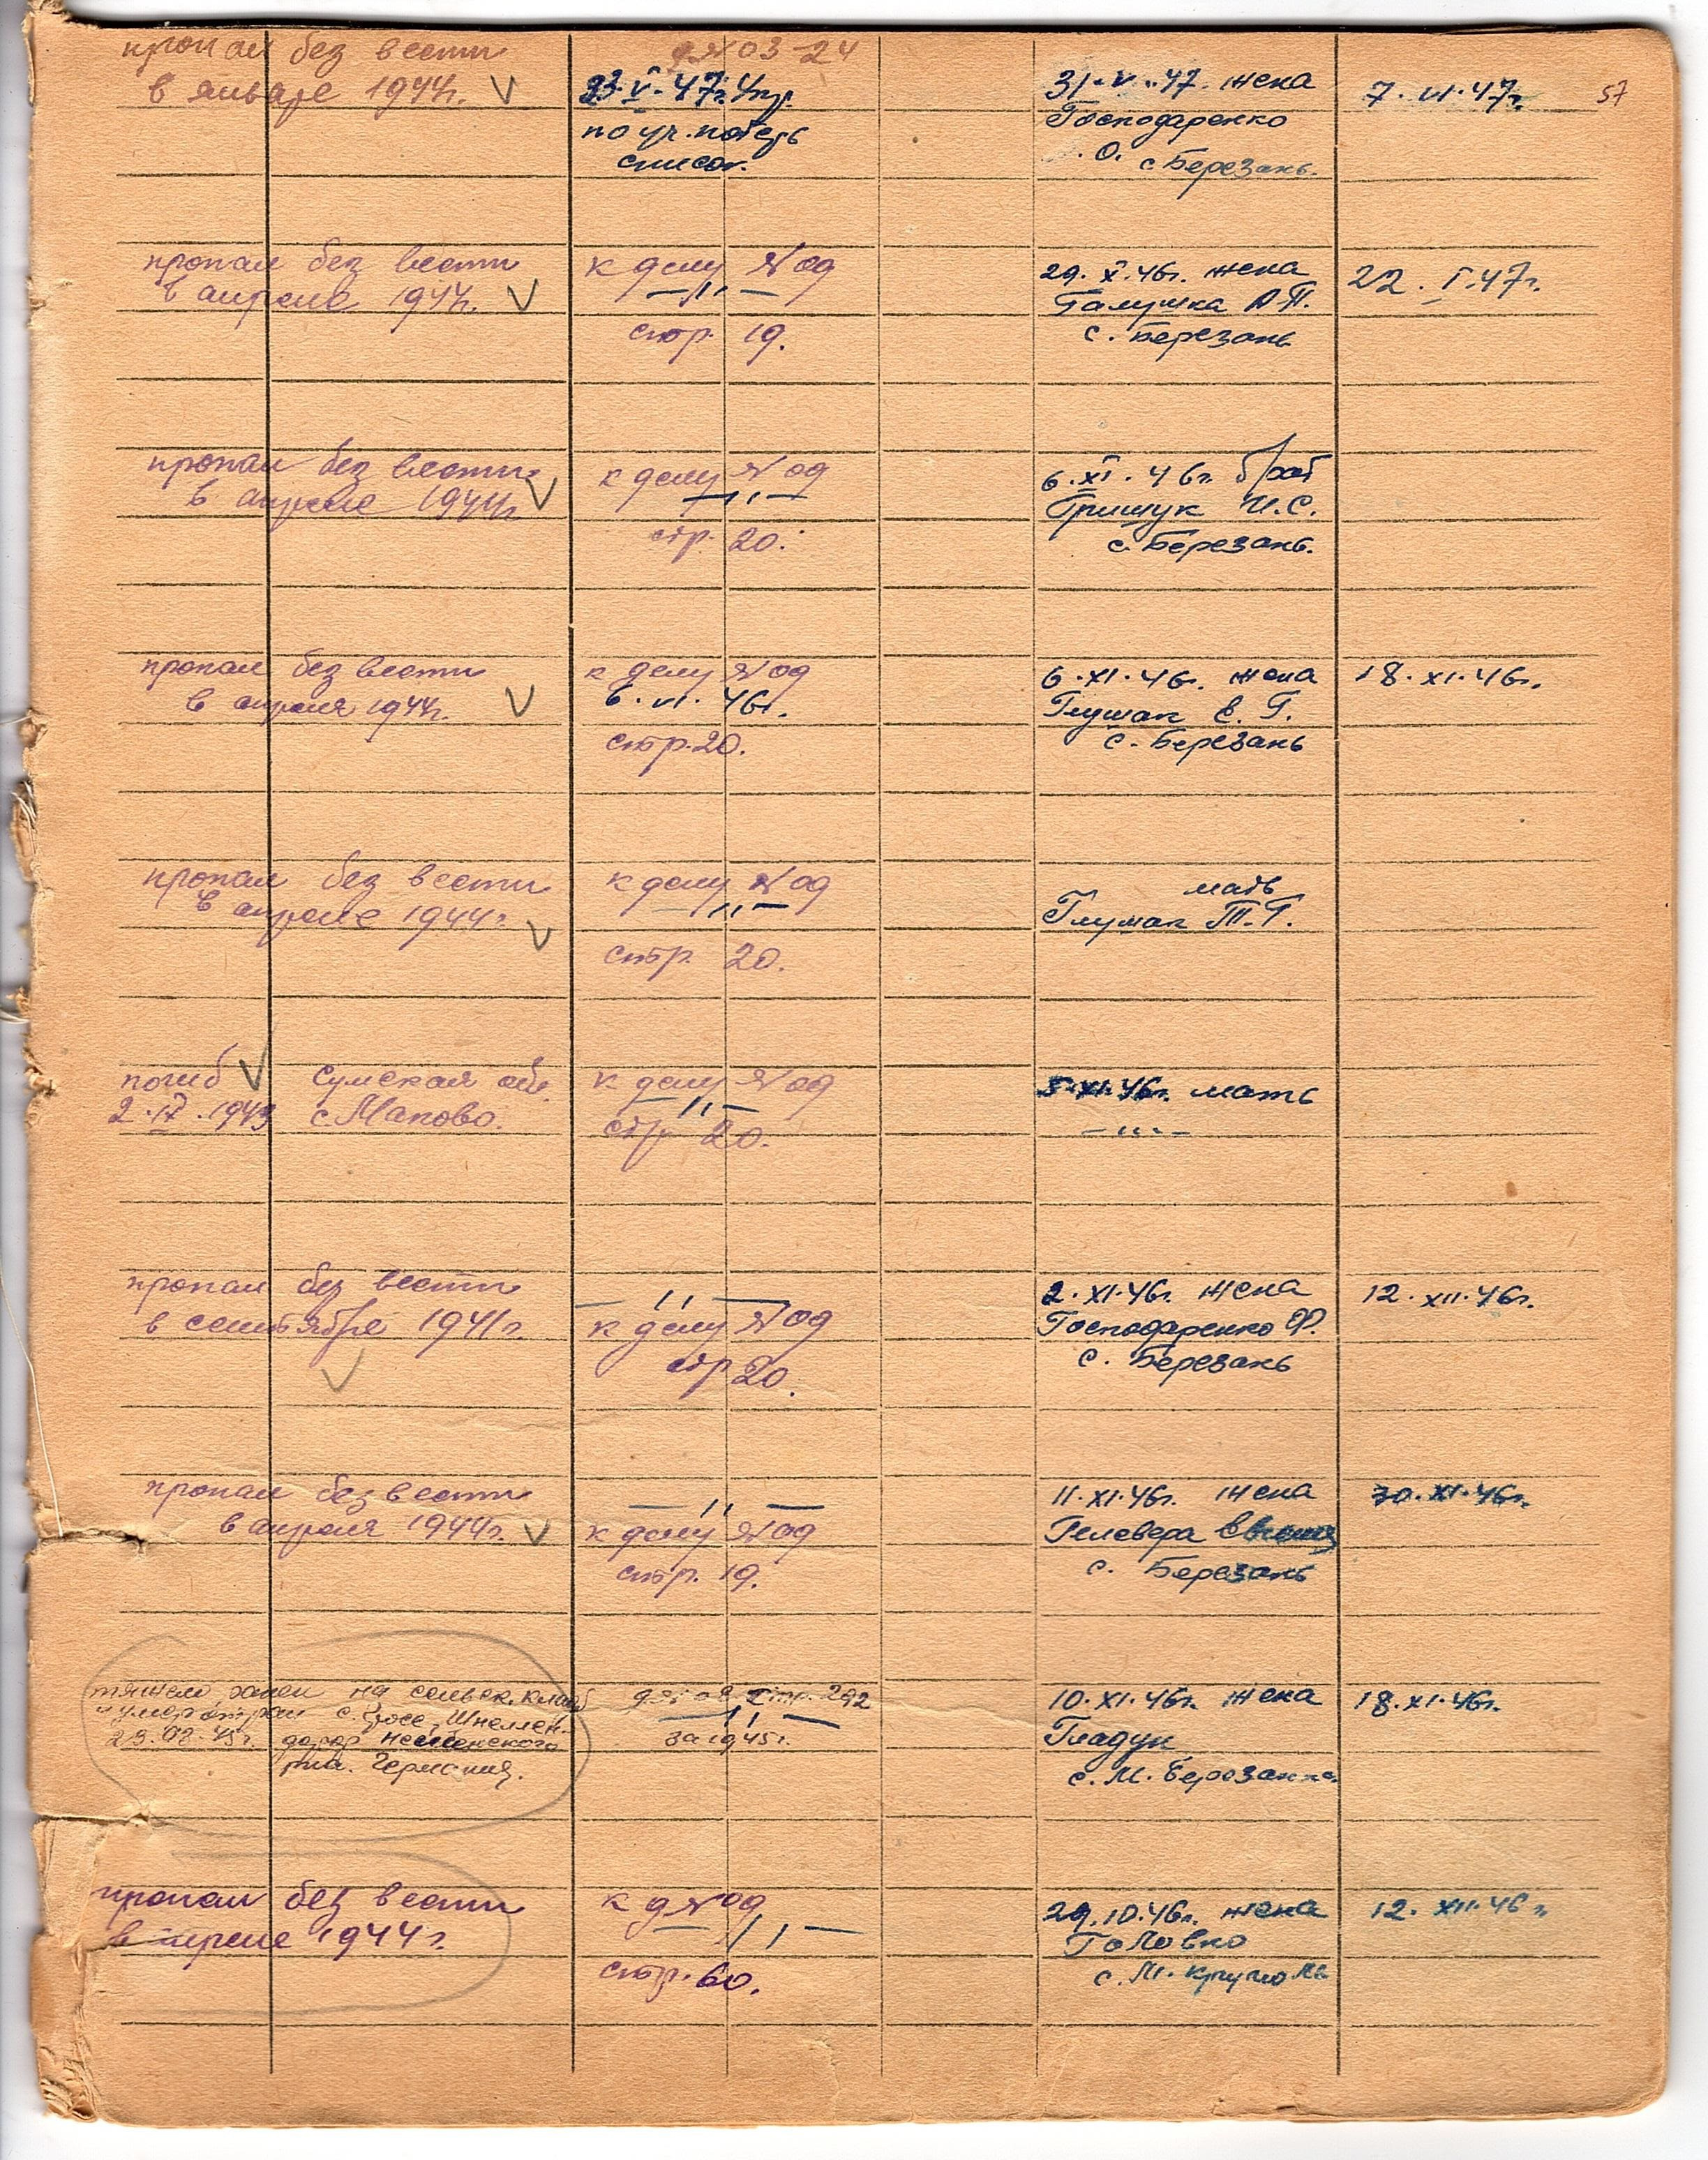 пропал без вести
в январе 1944г.
д№03-24
23.V.47г. Упр.
по уч. потерь
список.
31.V.47. жена
Господаренко
О. с Березань.
7.VI.47г.
57
пропал без вести
в апреле 1944г.
к делу №09
—„—
стр. 19.
29.X.46г. жена
Галушка А.П.
с. Березань
22.I.47г.
пропал без вести
в апреле 1944г.
к делу №09
—„—
стр. 20.
6.XI.46г. брат
Грищук И.С.
с. Березань.
пропал без вести
в апреля 1944г.
к делу №09
6.VI.46г.
стр. 20.
6.XI.46г. жена
Глушак Е.Г.
с. Березань
18.XI.46г.
пропал без вести
в апреле 1944г.
к делу №09
—„—
стр. 20.
мать
Глушак Т.Г.
погиб
2.IV.1943
Сумская обл.
с.Мапово.
к делу №09
—„—
стр. 20.
5.XI.46г. мать
—„—
пропал без вести
в сентябре 1941г.
—„—
к делу №09
стр 20.
2.XI.46г. жена
Господаренко Ф.
с. Березань
12.XII.46г.
пропал без вести
в апреля 1944г.
—„—
к делу №09
стр. 19.
11.XI.46г. жена
Гелевера
с. Березань
30.XI.46г.
тяжело ранен на сельск. кладб
умер от ран с. Гросс, Шнеллен-
23.02.45г. дорф Нейсенского
рна. Германия.
д№09 стр. 292
—„—
за 1945г.
10.XI.46г. жена
Гладун
с. М. Березанка
18.XI.46г.
пропал без вести
в апреле 1944г.
к д №09
—„—
стр. 60.
29.10.46г. жена
Головко
с. М. Круполь
12.XII.46г.